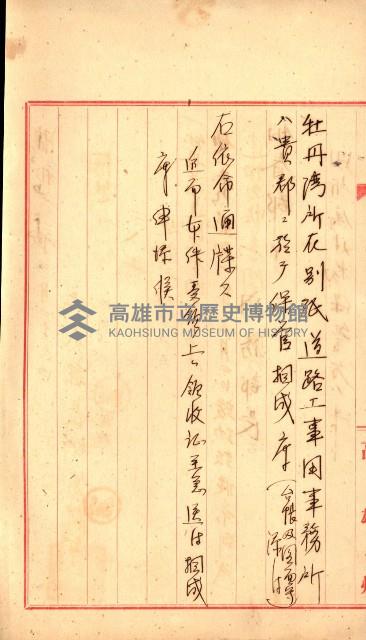 牡丹湾所在別紙道路工事用事務所
ハ貴郡ニ於テ保管相成度
台帳及図面
右依命通牒ス
追而本件受領ノ上ハ領收証至急送付相成
度申添候
高雄市立歷史博物館
KAOHSIUNG MUSEUM OF HISTORY
高雄州